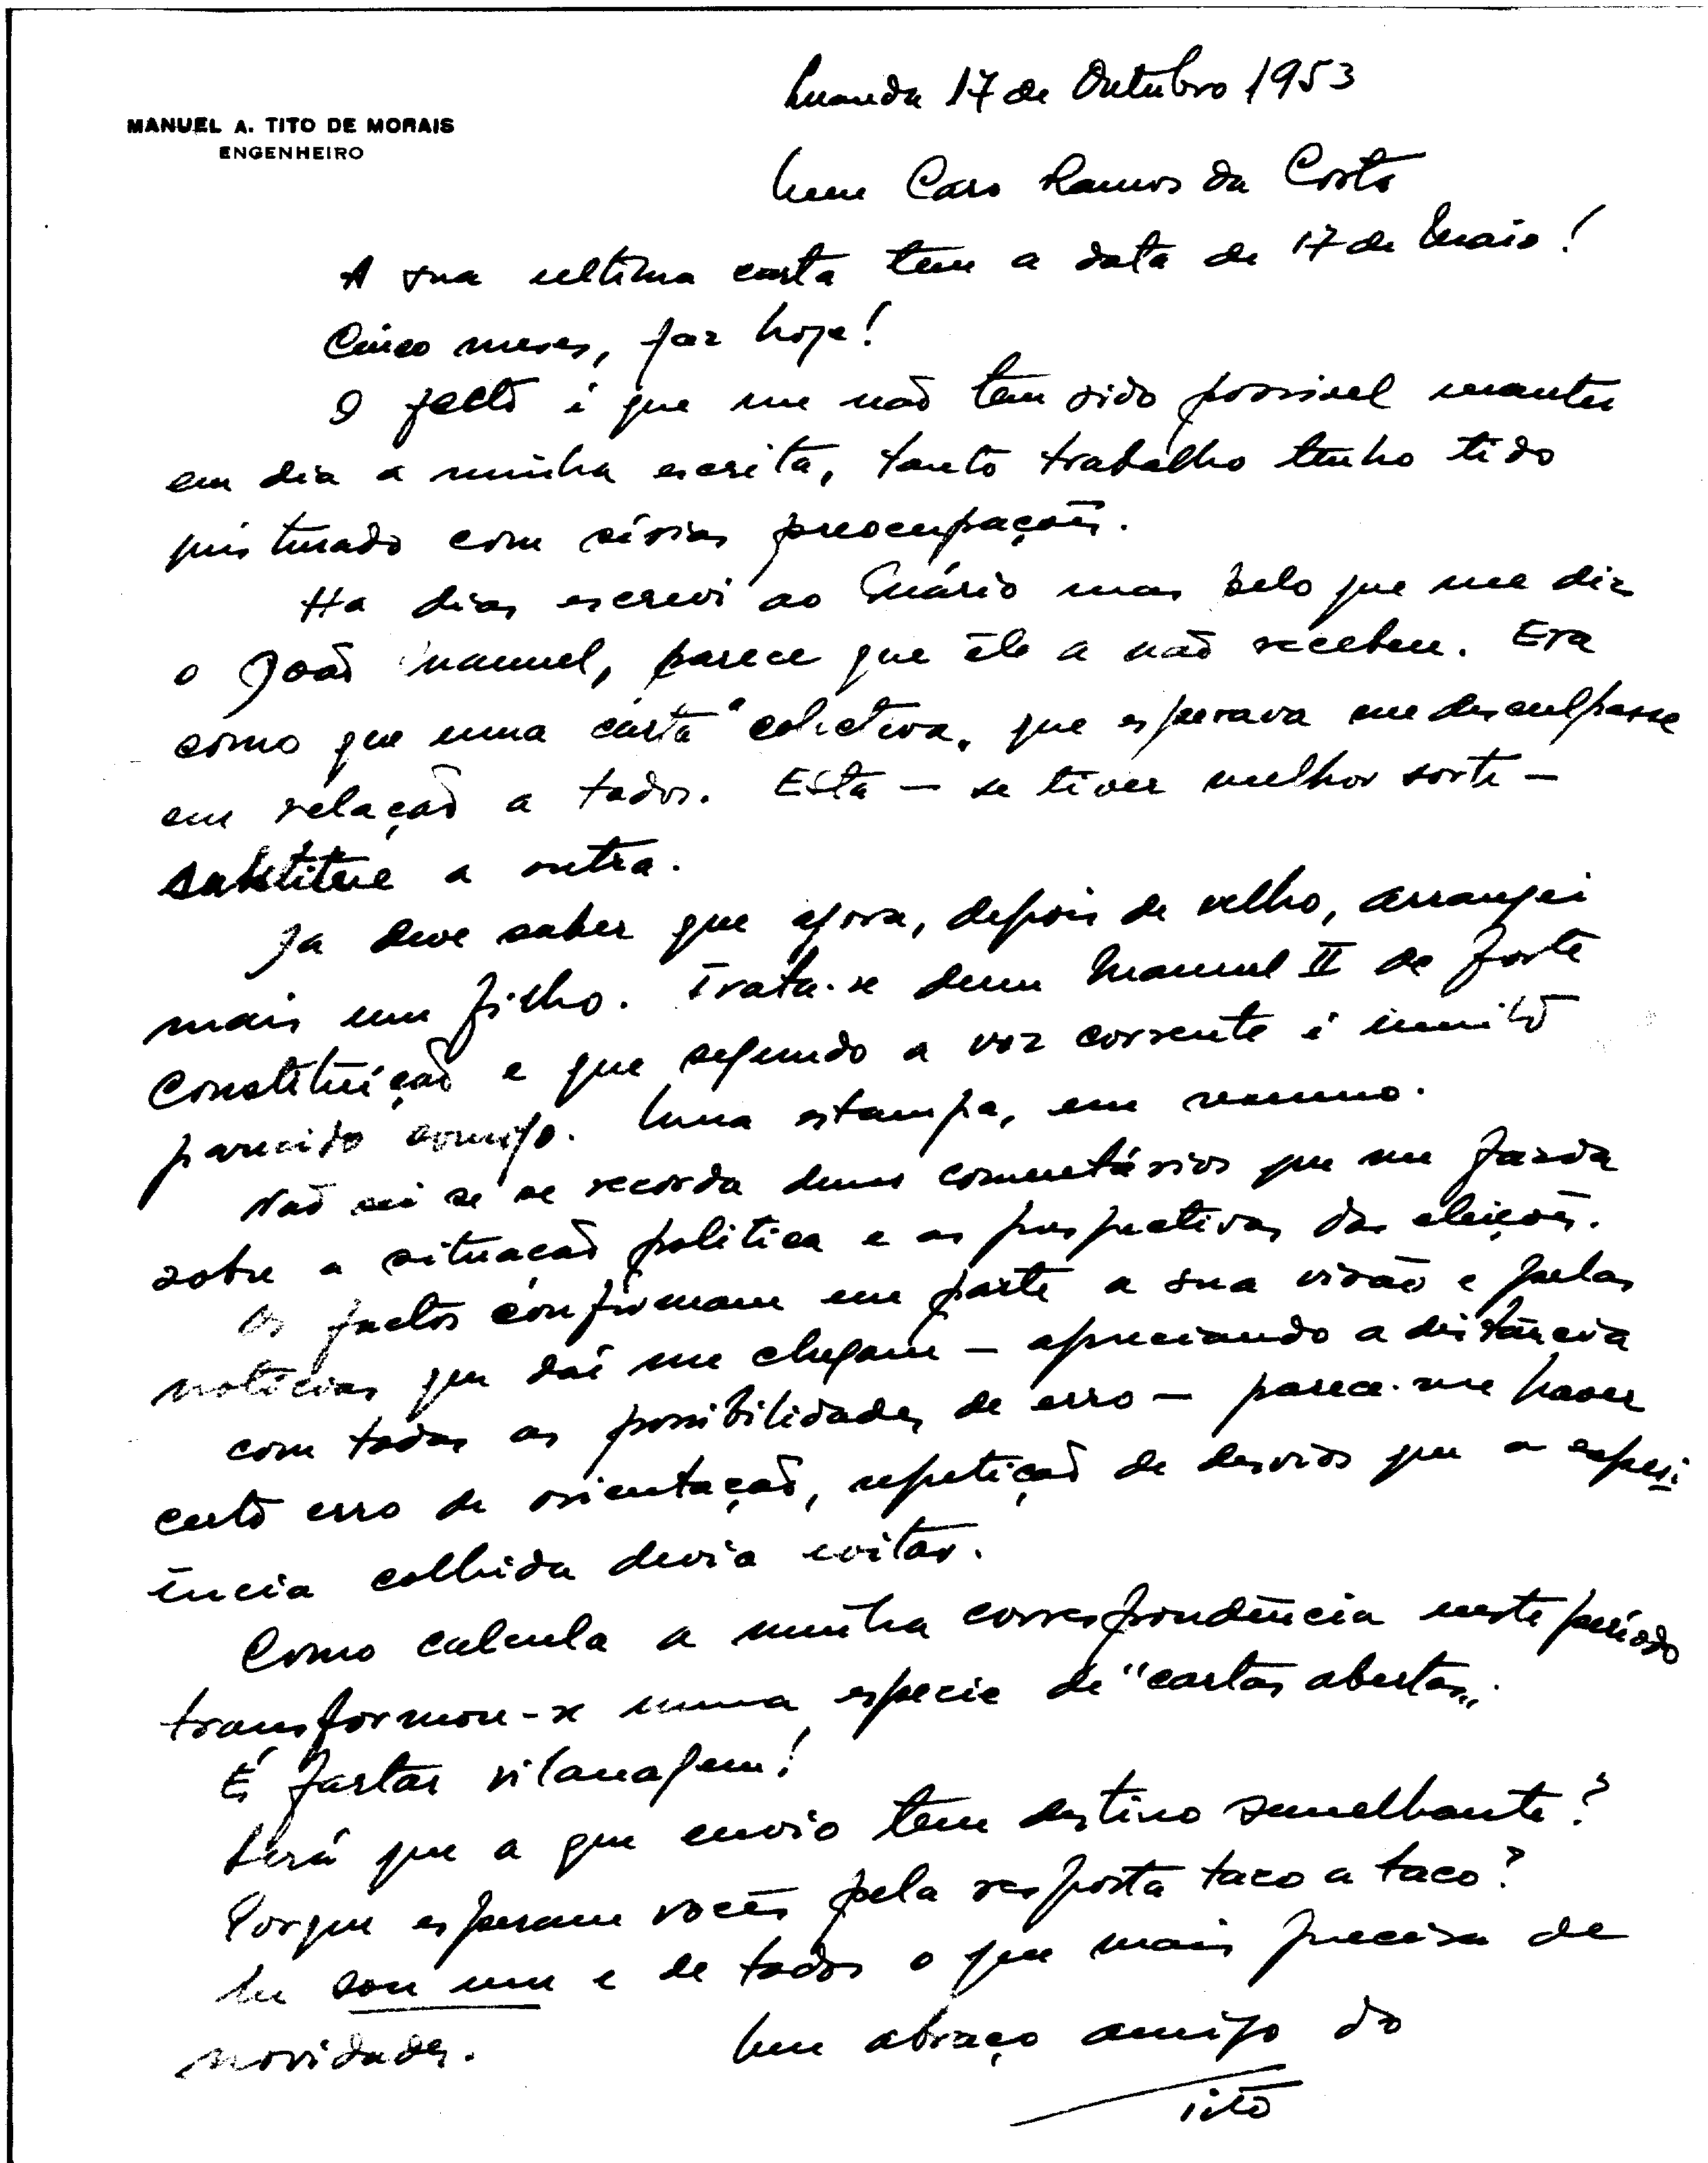 Luanda 17 de Outubro 1953
MANUEL A. TITO DE MORAIS
ENGENHEIRO
Meu Caro Ramos da Costa
A sua ultima carta tem a data de 17 de Maio!
Cinco meses, faz hoje!
O facto é que me não tem sido possivel manter
em dia a minha escrita, tanto trabalho tenho tido
misturado com sérias preocupações.
Ha dias escrevi ao Mário mas pelo que me diz
o João Manuel, parece que êle a não recebeu. Era
como que uma carta "colectiva" que esperava me desculpasse
em relação a todos. Esta – se tiver melhor sorte –
substitue a outra.
Ja deve saber que agora, depois de velho, arranjei
mais um filho. Trata-se dum Manuel II de forte
Constituição e que segundo a voz corrente é muito
parecido comigo. Uma estampa, em resumo.
Não sei se se recorda duns comentários que me fazia
sobre a situação politica e as perspectivas das eleições.
Os factos confirmam em parte a sua visão e pelas
noticias que daí me chegam – apreciando a distância
com todas as possibilidades de erro – parece-me haver
certo erro de orientação, repetição de desvios que a experi
ência colhida devia evitar.
Como calcula a minha correspondência neste período
transformou-se numa especie de "cartas abertas".
É fartar vilanagem!
Será que a que envio tem destino semelhante?
Porque esperam vocês pela resposta taco a taco?
Eu sou um e de todos o que mais precisa de
novidades. Um abraço amigo do
Tito